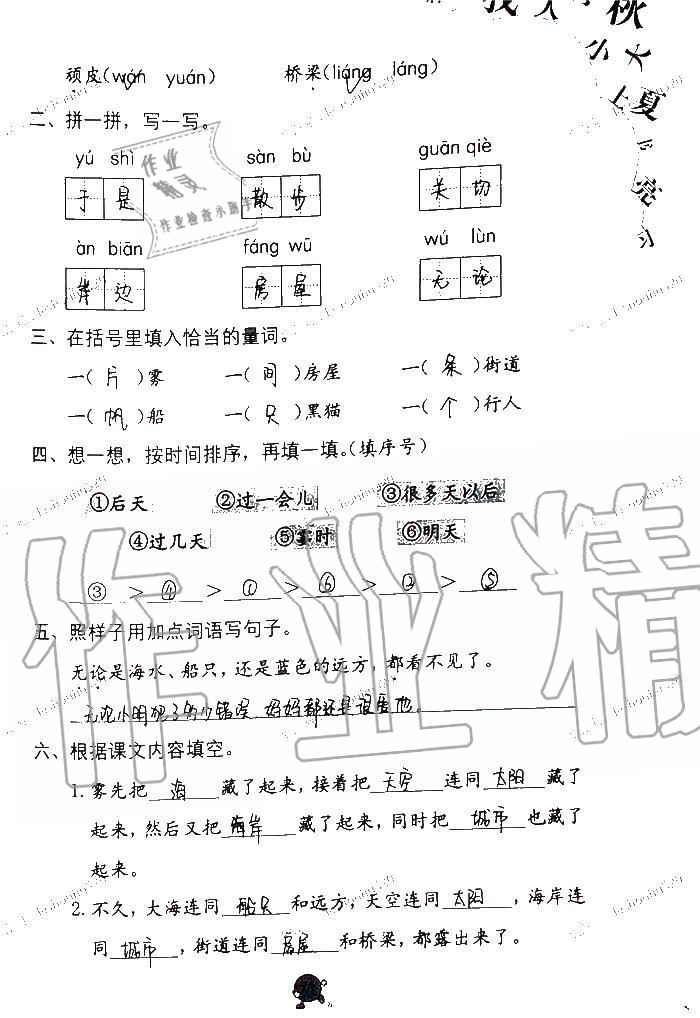 秋
大
上夏
亮
习
顽皮(wán yuán) 桥梁(liáng láng)
二、拼一拼，写一写。
yú shì sàn bù guān qiè
于是 散步 关切
àn biān fáng wū wú lùn
岸边 房屋 无论
作业精灵
作业检查小助手
三、在括号里填入恰当的量词。
一( 片 )雾 一( 间 )房屋 一( 条 )街道
一( 帆 )船 一( 只 )黑猫 一( 个 )行人
四、想一想，按时间排序，再填一填。(填序号)
①后天 ②过一会儿 ③很多天以后
④过几天 ⑤实时 ⑥明天
③ > ④ > ① > ⑥ > ② > ⑤
五、照样子用加点词语写句子。
无论是海水、船只，还是蓝色的远方，都看不见了。
无论小明犯了多少错误 妈妈都还是很爱他。
六、根据课文内容填空。
1. 雾先把 海 藏了起来，接着把 天空 连同 太阳 藏了
起来，然后又把 海岸 藏了起来，同时把 城市 也藏了
起来。
2. 不久，大海连同 船只 和远方，天空连同 太阳 ，海岸连
同 城市 ，街道连同 房屋 和桥梁，都露出来了。
作业精